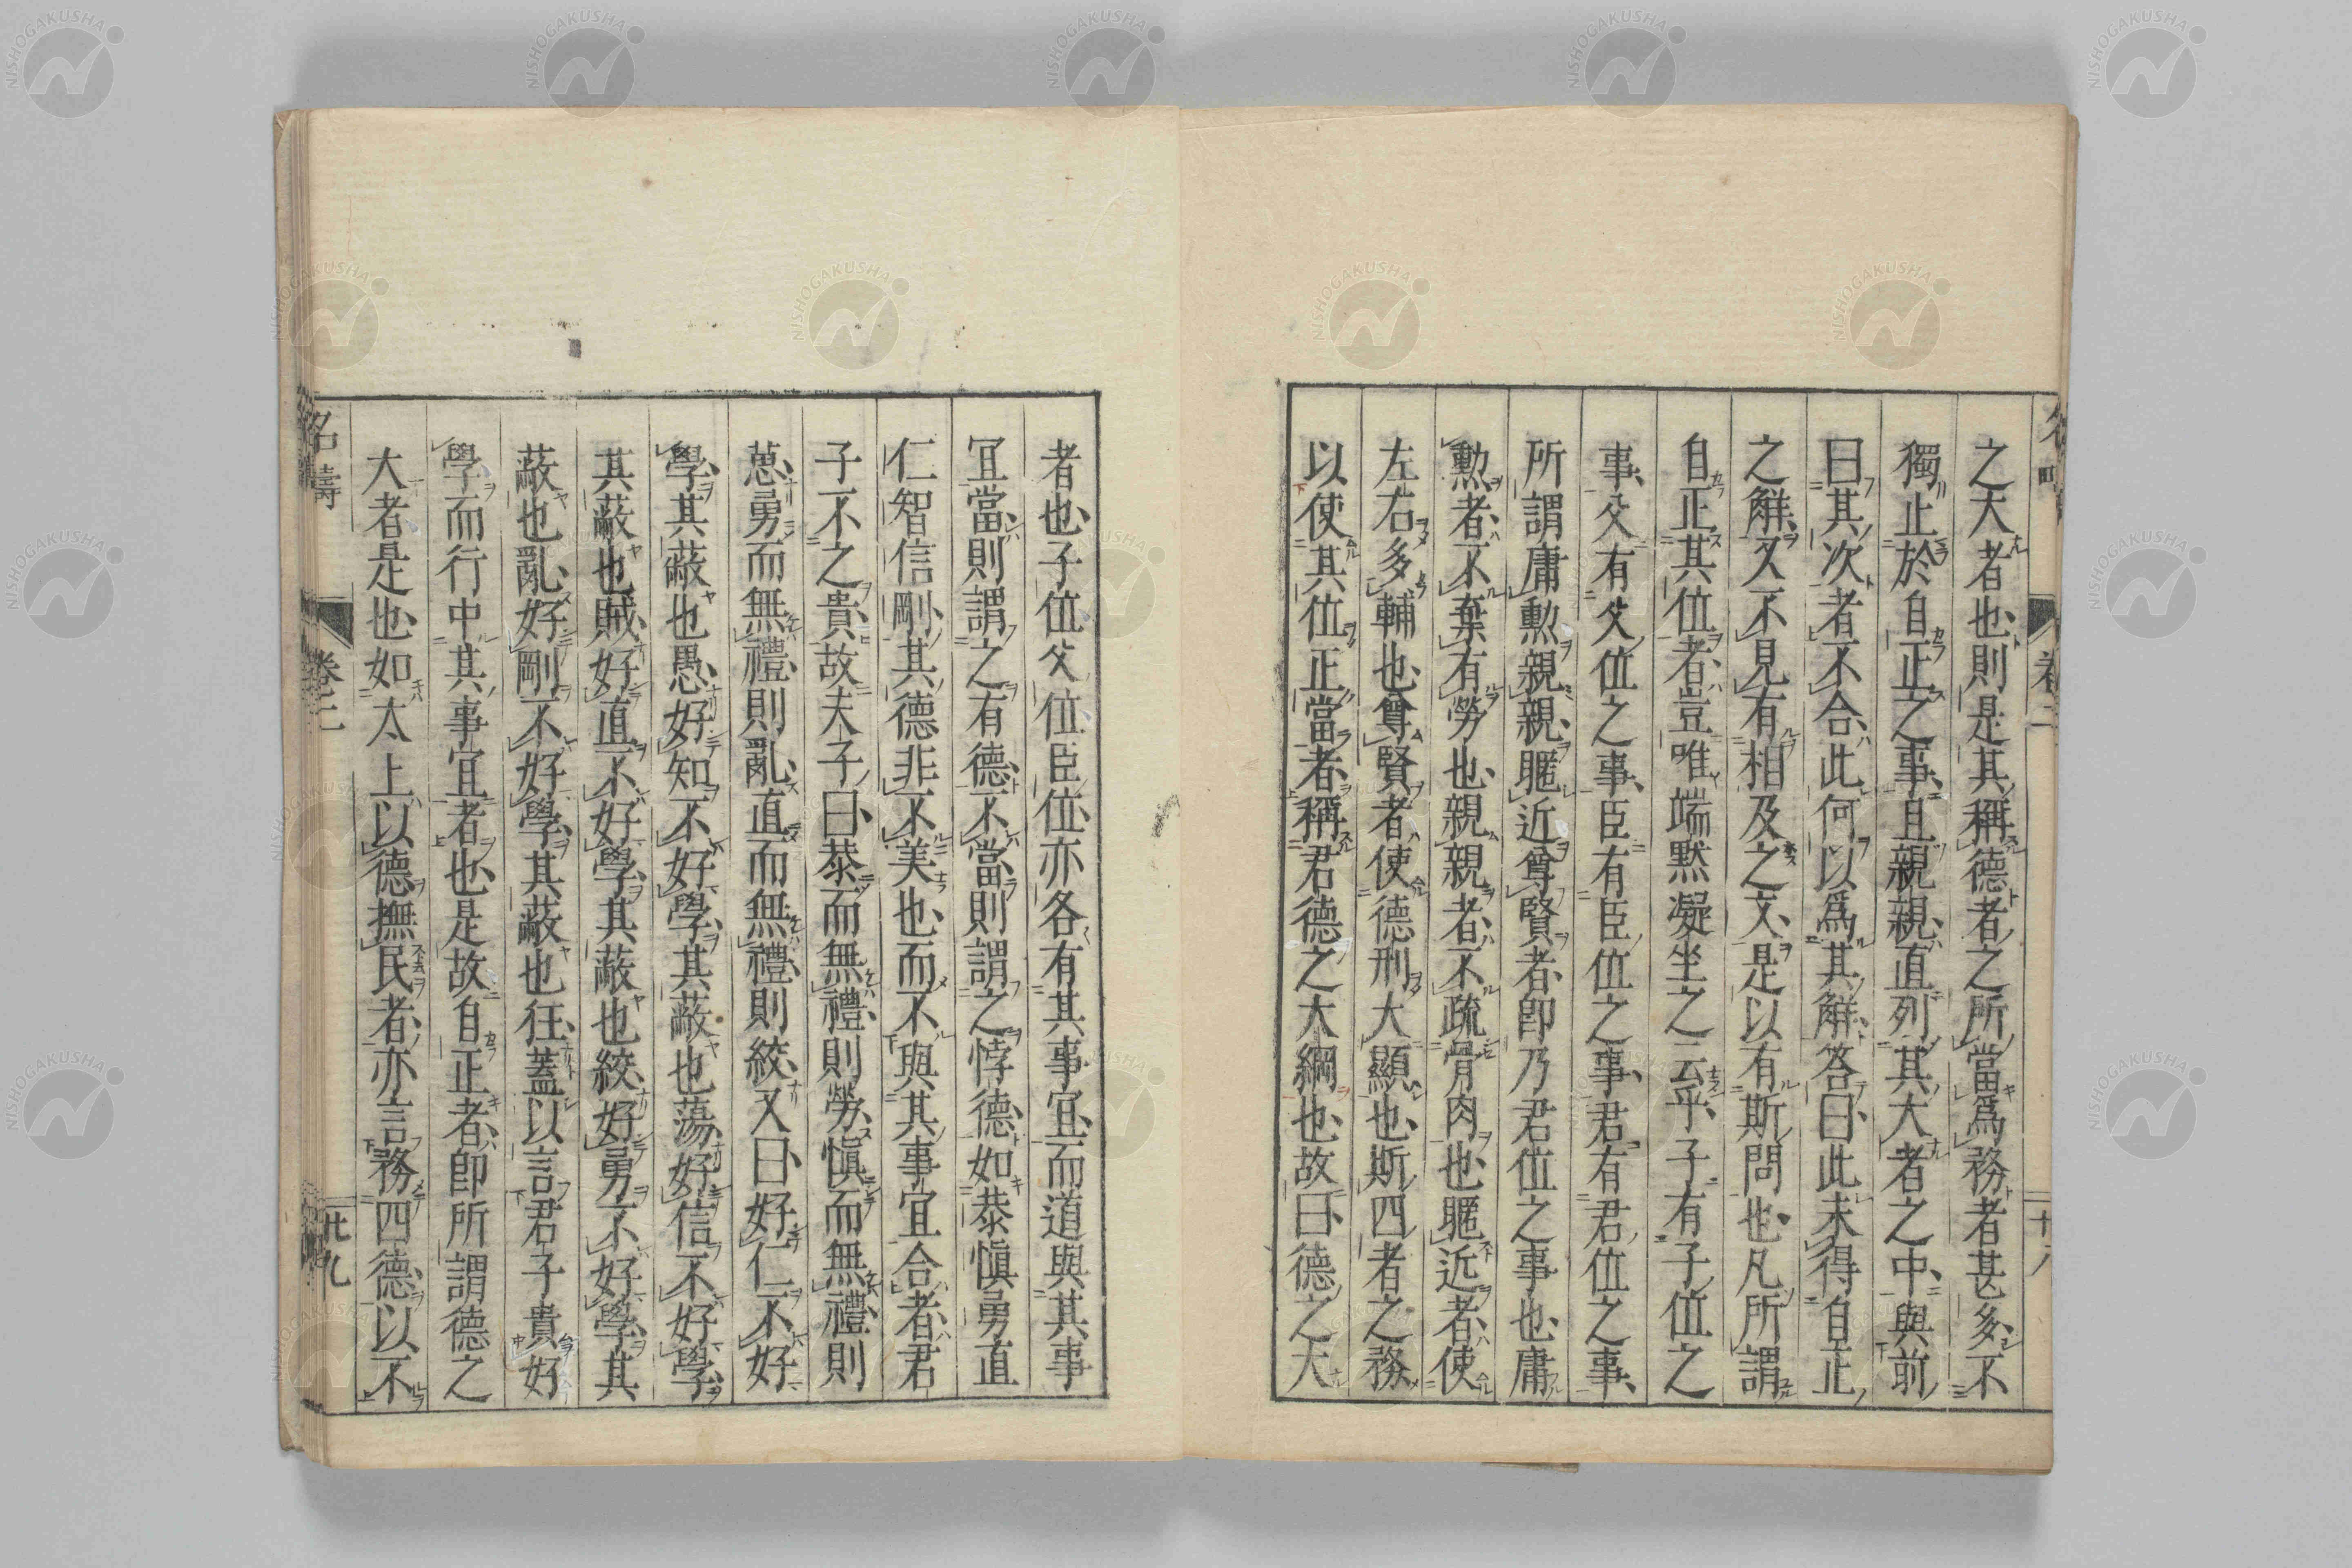 之大者也則是其稱德者之所當爲務者甚多不
獨止於自正之事且親親直列其大者之中與前
曰其次者不合此何以爲其解答曰此未得自正
之解又不見有相及之文是以有斯問也凡所謂
自正其位者豈唯端默凝坐之云乎子有子位之
事父有父位之事臣有臣位之事君有君位之事
所謂庸勲親親暱近尊賢者即乃君位之事也庸
勲者不棄有勞也親親者不疏骨肉也暱近者使
左右多輔也尊賢者使德刑大顯也斯四者之務
以使其位正當者稱君德之大綱也故曰德之大
者也子位父位臣位亦各有其事宜而道與其事
宜當則謂之有德不當則謂之悖德如恭愼勇直
仁智信剛其德非不美也而不與其事宜合者君
子不之貴故夫子曰恭而無禮則勞愼而無禮則
葸勇而無禮則亂直而無禮則絞又曰好仁不好
學其蔽也愚好知不好學其蔽也蕩好信不好學
其蔽也賊好直不好學其蔽也絞好勇不好學其
蔽也亂好剛不好學其蔽也狂蓋以言君子貴好
學而行中其事宜者也是故自正者即所謂德之
大者是也如太上以德撫民者亦言務四德以不
名疇
卷二
廿九
NISHOGAKUSHA